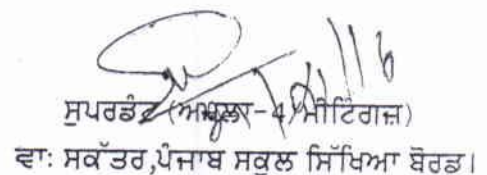 ਸੁਪਰਡੰਟ (ਅਮਲਾ-4/ਮੀਟਿੰਗਜ਼)
ਵਾ: ਸਕੱਤਰ,ਪੰਜਾਬ ਸਕੂਲ ਸਿੱਖਿਆ ਬੋਰਡ।